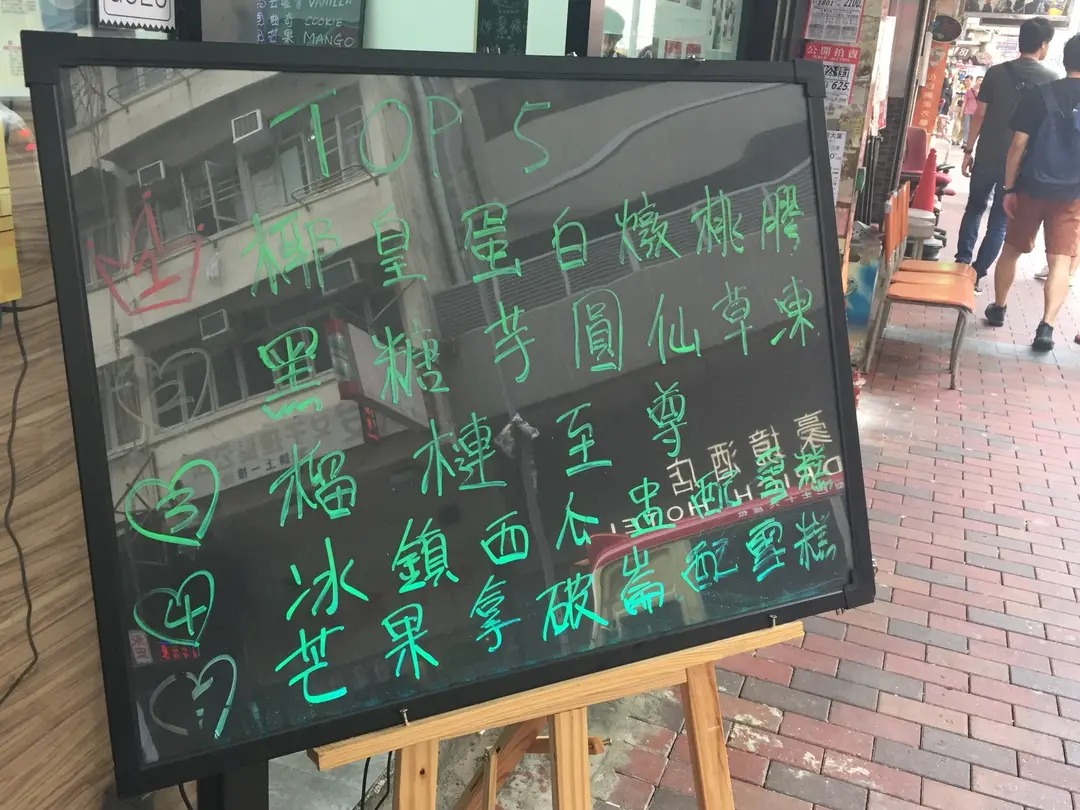 VANILLA
COOKIE
芒果 MANGO
公開拍賣
625
TOP 5
1 椰皇蛋白燉桃膠
2 黑糖芋圓仙草凍
3 榴槤至尊
4 冰鎮西瓜盅配雪糕
芒果拿破崙配雪糕
豪境酒店
HOTEL